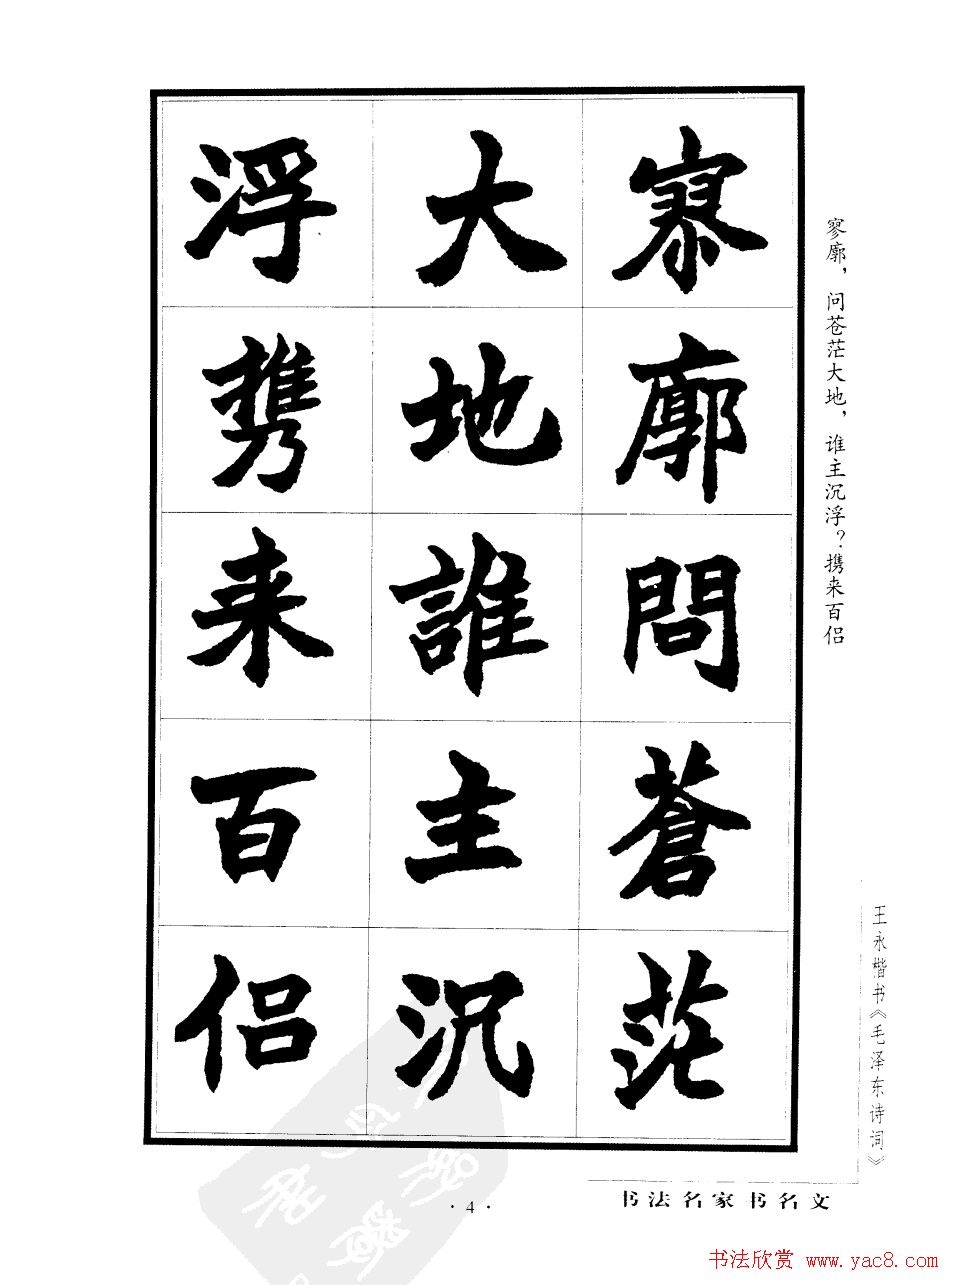 寥廓問蒼茫
大地誰主沉
浮携来百侣
寥廓，问苍茫大地，谁主沉浮？携来百侣
王永楷书《毛泽东诗词》
书法名家书名文
·4·
书法欣赏 www.yac8.com